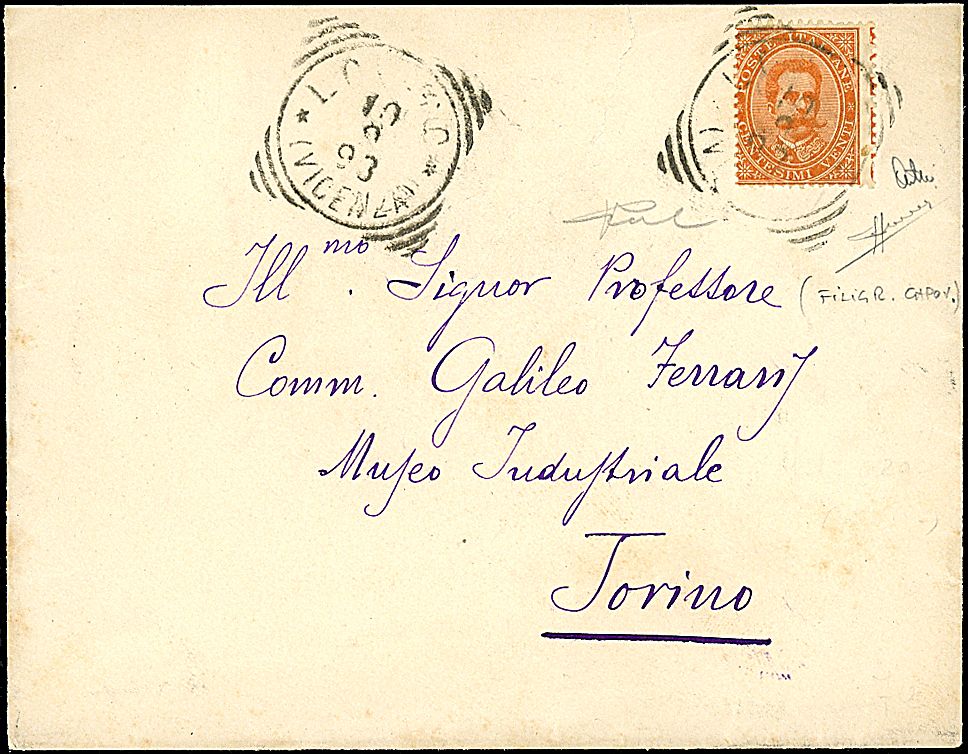 10
8
93
(VICENZA)
POSTE ITALIANE
CENTESIMI VENTI
Ill.mo Signor Professore
(FILIGR. CAPOV.)
Comm. Galileo Ferraris
Museo Industriale
Torino